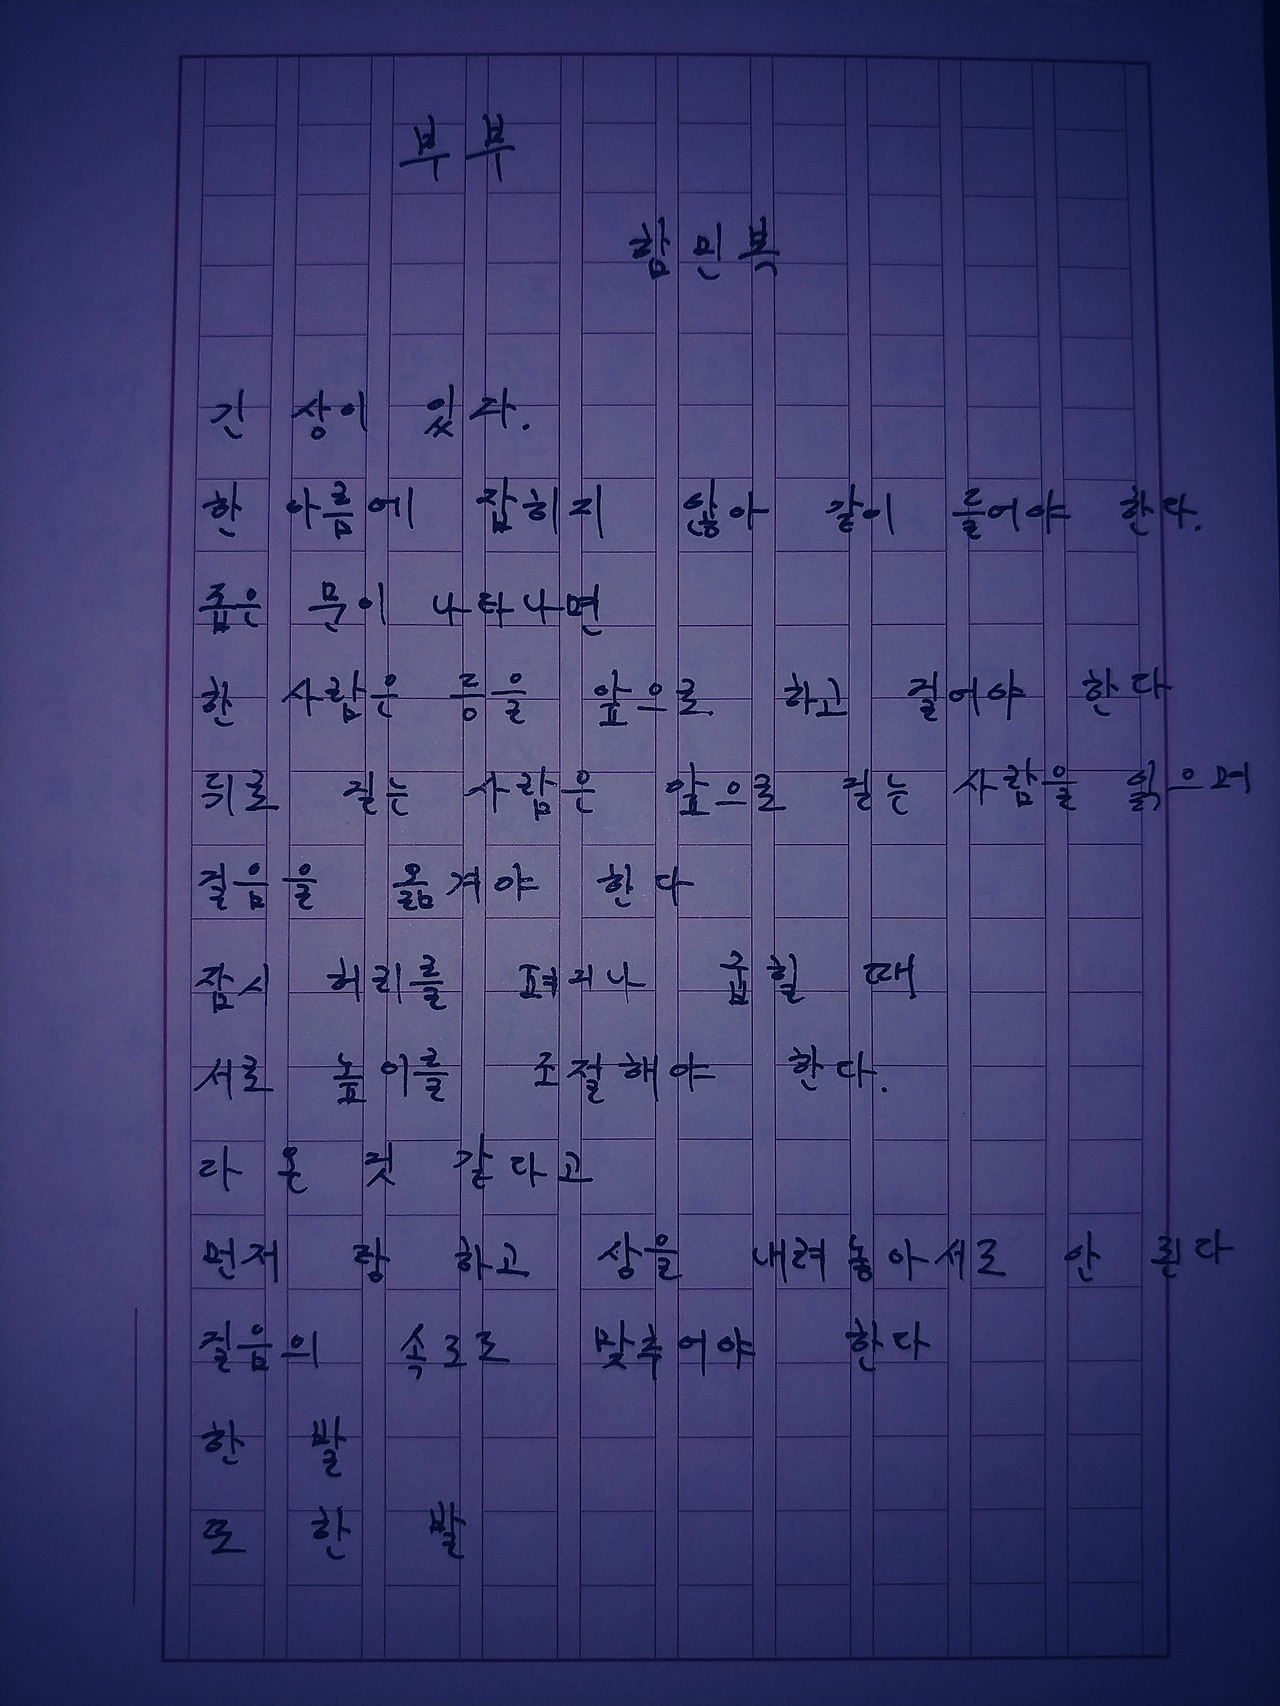 부부
함민복
긴 상이 있다.
한 아름에 잡히지 않아 같이 들어야 한다.
좁은 문이 나타나면
한 사람은 등을 앞으로 하고 걸어야 한다
뒤로 걷는 사람은 앞으로 걷는 사람을 읽으며
걸음을 옮겨야 한다
잠시 허리를 펴거나 굽힐 때
서로 높이를 조절해야 한다.
다 온 것 같다고
먼저 탕 하고 상을 내려놓아서도 안 된다
걸음의 속도도 맞추어야 한다
한 발
또 한 발